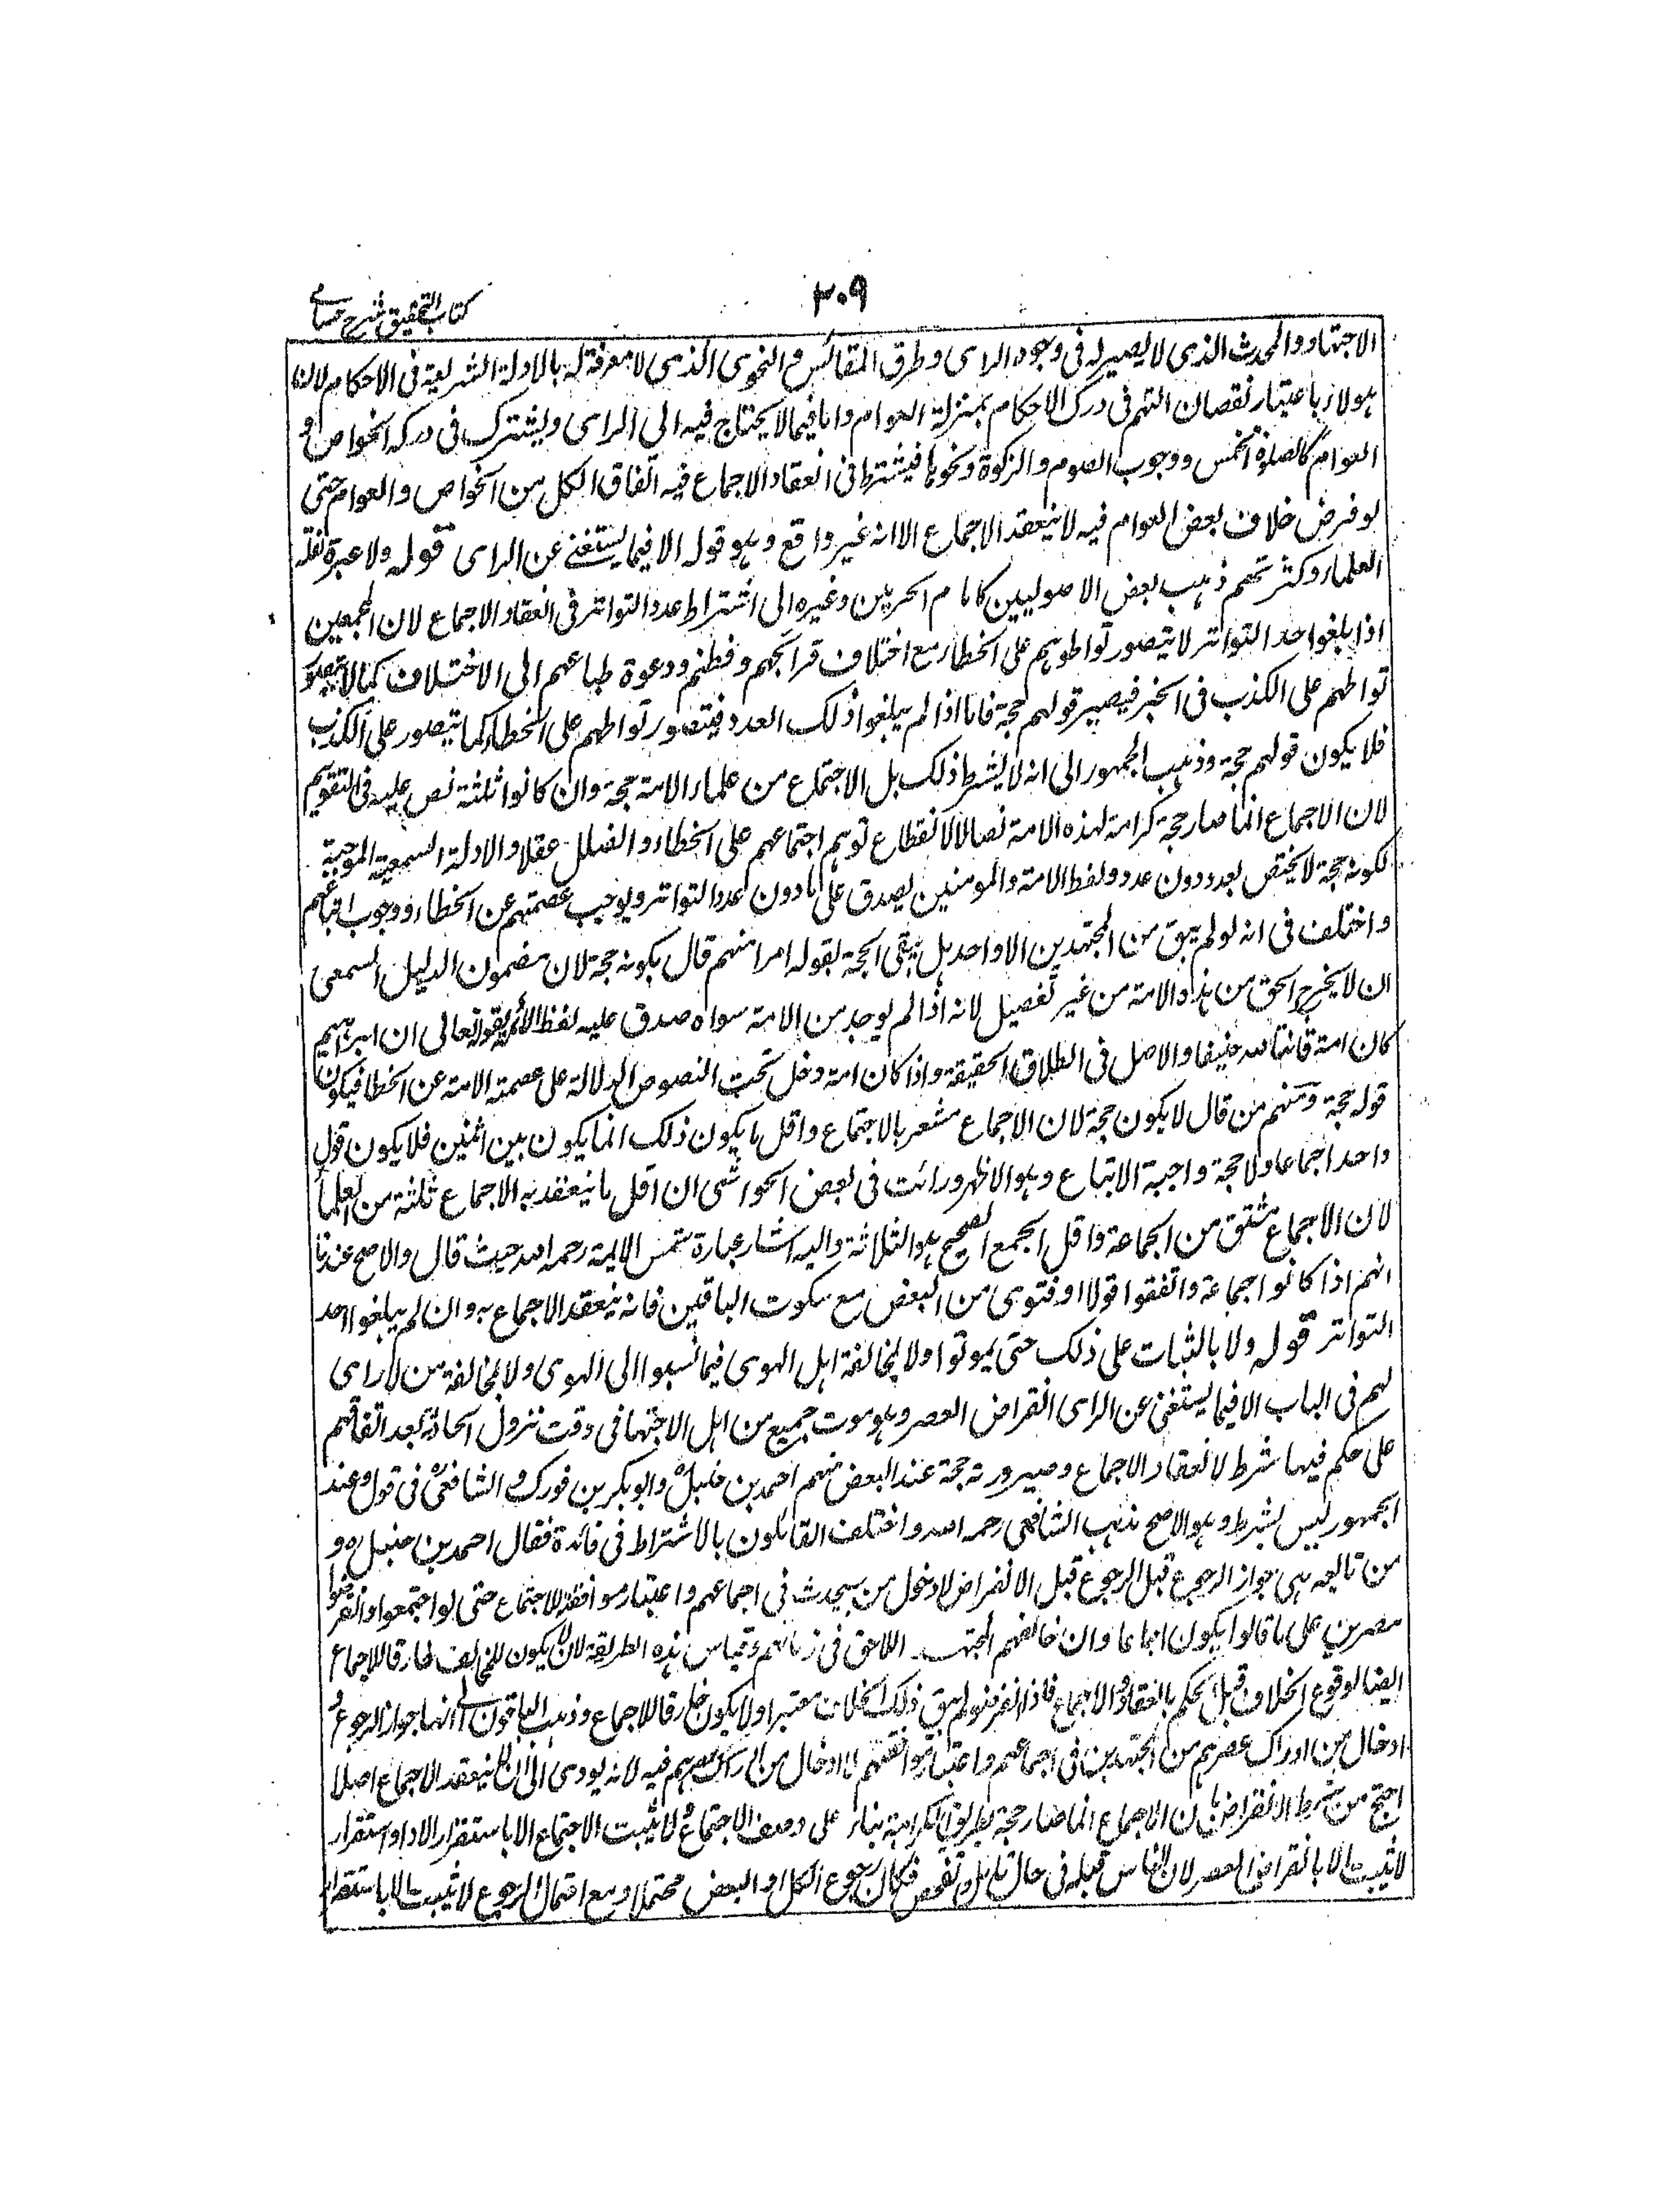 كتاب التحقيق شرح حسامى
٣٠٩
الاجتهاد والمحدث الذى لا بصير له فى وجوه الراى وطرق المقائس والنحوى الذى لا معرفة له بالادلة الشرعية فى الاحكام لان
هولاء باعتبار نقصان التهم فى درك الاحكام بمنزلة العوام واما فيما لا يحتاج فيه الى الراى ويشترك فى دركه الخواص و
العوام كالصلوة الخمس ووجوب الصوم والزكوة ونحوها فيشترط فى انعقاد الاجماع فيه اتفاق الكل من الخواص والعوام حتى
لو فرض خلاف بعض العوام فيه لا ينعقد الاجماع الا انه غير واقع وهو قوله الا فيما يستغنى عن الراى قوله ولا عبرة لقلة
العلماء وكثرتهم ذهب بعض الاصوليين كامام الحرمين وغيره الى اشتراط عدد التواتر فى انعقاد الاجماع لان المجمعين
اذا بلغوا حد التواتر لا يتصور تواطوهم على الخطاء مع اختلاف قرائحهم وفطنهم ودعوة طباعهم الى الاختلاف كما لا يتصور
تواطهم على الكذب فى الخبر فيصير قولهم حجة فاما اذا لم يبلغوا ذلك العدد فيتصور تواطهم على الخطاء كما يتصور على الكذب
فلا يكون قولهم حجة وذهب الجمهور الى انه لا يشترط ذلك بل الاجتماع من علماء الامة حجة وان كانوا ثلثة نص عليه فى التقويم
لان الاجماع انما صار حجة كرامة لهذه الامة نصا لا لانقطاع توهم اجتماعهم على الخطاء والضلل عقلا والادلة السمعية الموجبة
لكونه حجة لا يختص بعدد دون عدد ولفظ الامة والمومنين يصدق على ما دون عدد التواتر ويوجب عصمتهم عن الخطاء ووجوب اتباعهم
واختلف فى انه لو لم يبق من المجتهدين الا واحد هل يبقى الحجة بقوله ام لا منهم قال بكونه حجة لان مضمون الدليل السمعى
ان لا يخرج الحق من هذه الامة من غير تفصيل لانه اذا لم يوجد من الامة سواه صدق عليه لفظ الامة بقوله تعالى ان ابراهيم
كان امة قانتا لله حنيفا والاصل فى الطلاق الحقيقة واذا كان امة دخل تحت النصوص الدلالة على عصمة الامة عن الخطا فيكون
قوله حجة ومنهم من قال لا يكون حجة لان الاجماع مشعر بالاجتماع واقل ما يكون ذلك انما يكون بين اثنين فلا يكون قول
واحد اجماعا ولا حجة واجبة الاتباع وهو الاظهر ورائت فى بعض الحواشى ان اقل ما ينعقد به الاجماع ثلثة من العلماء
لان الاجماع مشتق من الجماعة واقل الجمع الصحيح هو الثلاثة واليه اشار عبارة شمس الايمة رحمه الله حيث قال والاصح عندنا
انهم اذا كانوا جماعة واتفقوا قولا او فتوى من البعض مع سكوت الباقين فانه ينعقد الاجماع به وان لم يبلغوا حد
التواتر قوله ولا بالثبات على ذلك حتى يموتوا ولا لمخالفة اهل الهوى فيما نسبوا الى الهوى ولا لمخالفة من لا راى
لهم فى الباب الا فيما يستغنى عن الراى انقراض العصر وهو موت جميع من اهل الاجتهاد فى وقت نزول الحادثة بعد اتفاقهم
على حكم فيها شرط لانعقاد الاجماع وصيرورته حجة عند البعض منهم احمد بن حنبل وابو بكر بن فورك والشافعى فى قول وعند
الجمهور ليس بشرط وهو الاصح مذهب الشافعى رحمه الله واختلف القائلون بالاشتراط فى فائدة فقال احمد بن حنبل ره و
من تابعه هى جواز الرجوع قبل الرجوع قبل الانقراض لا دخول من سيحدث فى اجماعهم واعتبار موافقة للاجتماع حتى لو اجتمعوا وانقرضوا
مصرين على ما قالوا يكون اجماعا وان خالفهم المجتهد اللاحق فى زمانهم وقياس هذه الطريقة لان لا يكون للمخالف خارقا للاجماع
ايضا لوقوع الخلاف قبل الحكم بانعقاد الاجماع فاذا انقرضوا لم يبق ذلك الخلاف معتبرا ولا يكون خارقا للاجماع وذهب الباقون الى انها جواز الرجوع و
ادخال من ادراك عصرهم من المجتهدين فى اجماعهم واعتبار موافقتهم لا ادخال من عصرهم فيه لانه يودى الى ان لا ينعقد الاجماع اصلا
احتج من شرط الانقراض بان الاجماع انما صار حجة بطريق الكرامة بناء على وصف الاجتماع ولا يثبت الاجتماع الا باستقرار الاراء واستقرار
لا يثبت الا بانقراض العصر لان الناس قبله فى حال تامل وتفحص فكان رجوع الكل او البعض محتملا ومع احتمال الرجوع لا يثبت الا باستقرار